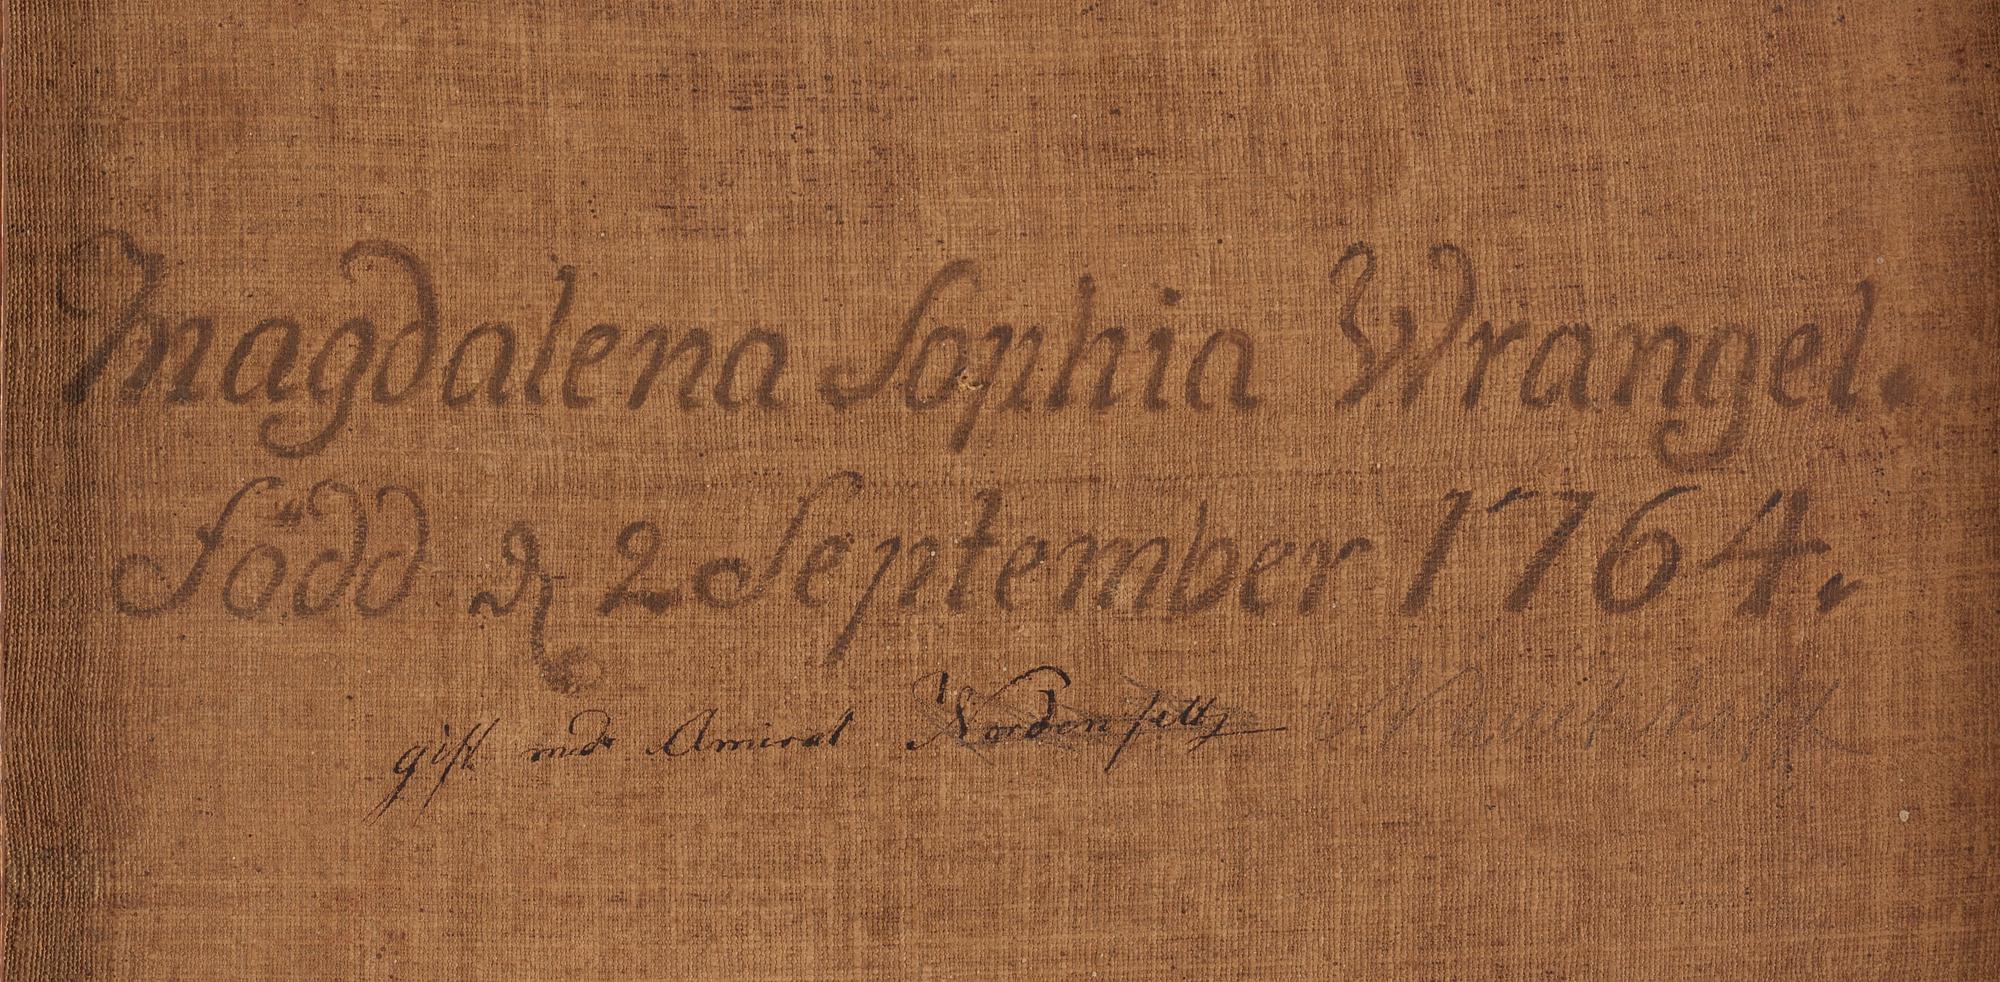 Magdalena Sophia Wrangel.
Född d. 2 September 1764.
gift med Amiral